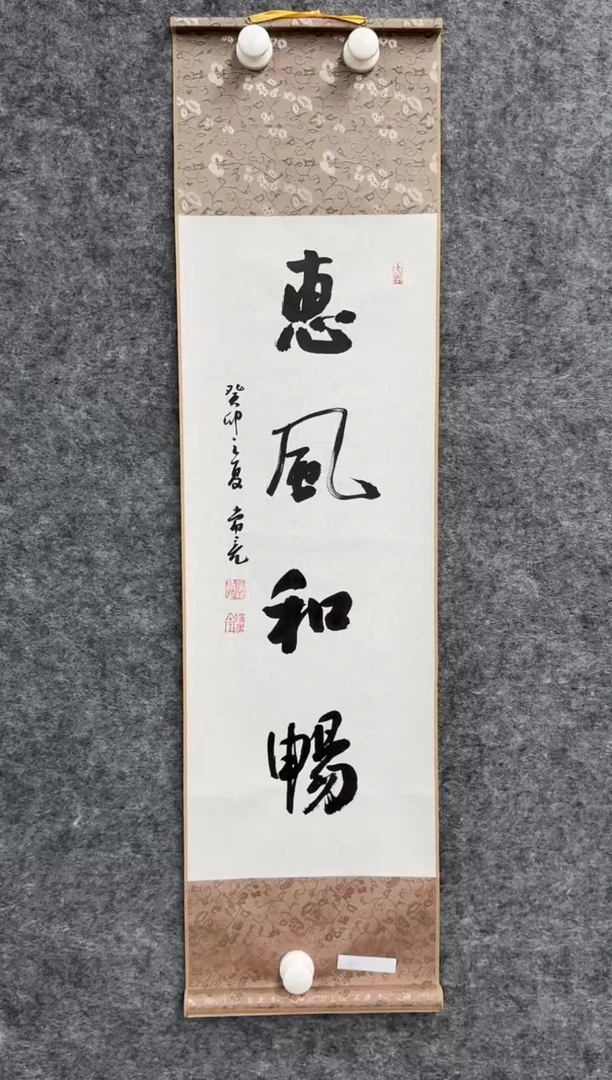 惠風和暢
癸卯之夏 常亮